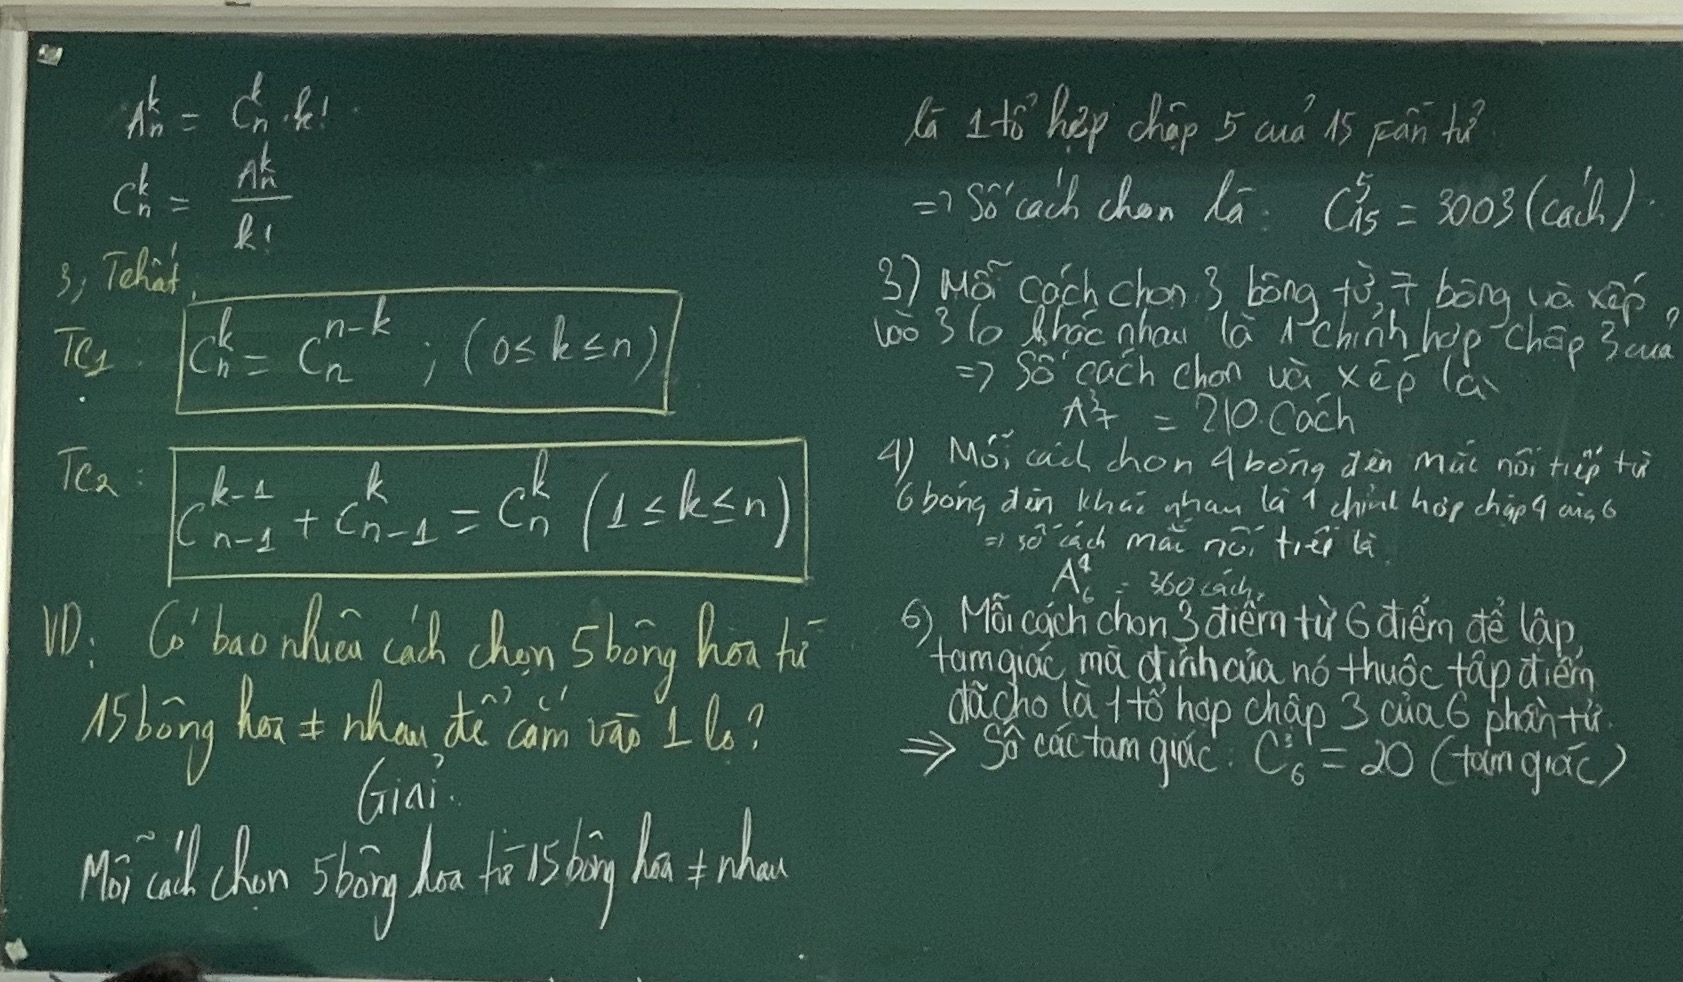 Aₙᵏ = Cₙᵏ . k!
Cₙᵏ = Aₙᵏ / k!
3, Tchất
TC1 : Cₙᵏ = Cₙⁿ⁻ᵏ ; (0 ≤ k ≤ n)
TC2 : Cₙ₋₁ᵏ⁻¹ + Cₙ₋₁ᵏ = Cₙᵏ (1 ≤ k ≤ n)
VD: Có bao nhiêu cách chọn 5 bông hoa từ
15 bông hoa ≠ nhau để cắm vào 1 lọ?
Giải.
Mỗi cách chọn 5 bông hoa từ 15 bông hoa ≠ nhau
là 1 tổ hợp chập 5 của 15 fần tử
=> Số cách chọn là: C₁₅⁵ = 3003 (cách).
3) Mỗi cách chọn 3 bông từ 7 bông và xếp
vào 3 lọ khác nhau là 1 chỉnh hợp chập 3 của 7
=> Số cách chọn và xếp là
A₇³ = 210 cách
4) Mỗi cách chọn 4 bóng đèn mắc nối tiếp từ
6 bóng đèn khác nhau là 1 chỉnh hợp chập 4 của 6
=> số cách mắc nối tiếp là
A₆⁴ = 360 cách.
6) Mỗi cách chọn 3 điểm từ 6 điểm để lập
tam giác mà đỉnh của nó thuộc tập điểm
đã cho là 1 tổ hợp chập 3 của 6 phần tử.
=> Số các tam giác: C₆³ = 20 (tam giác)